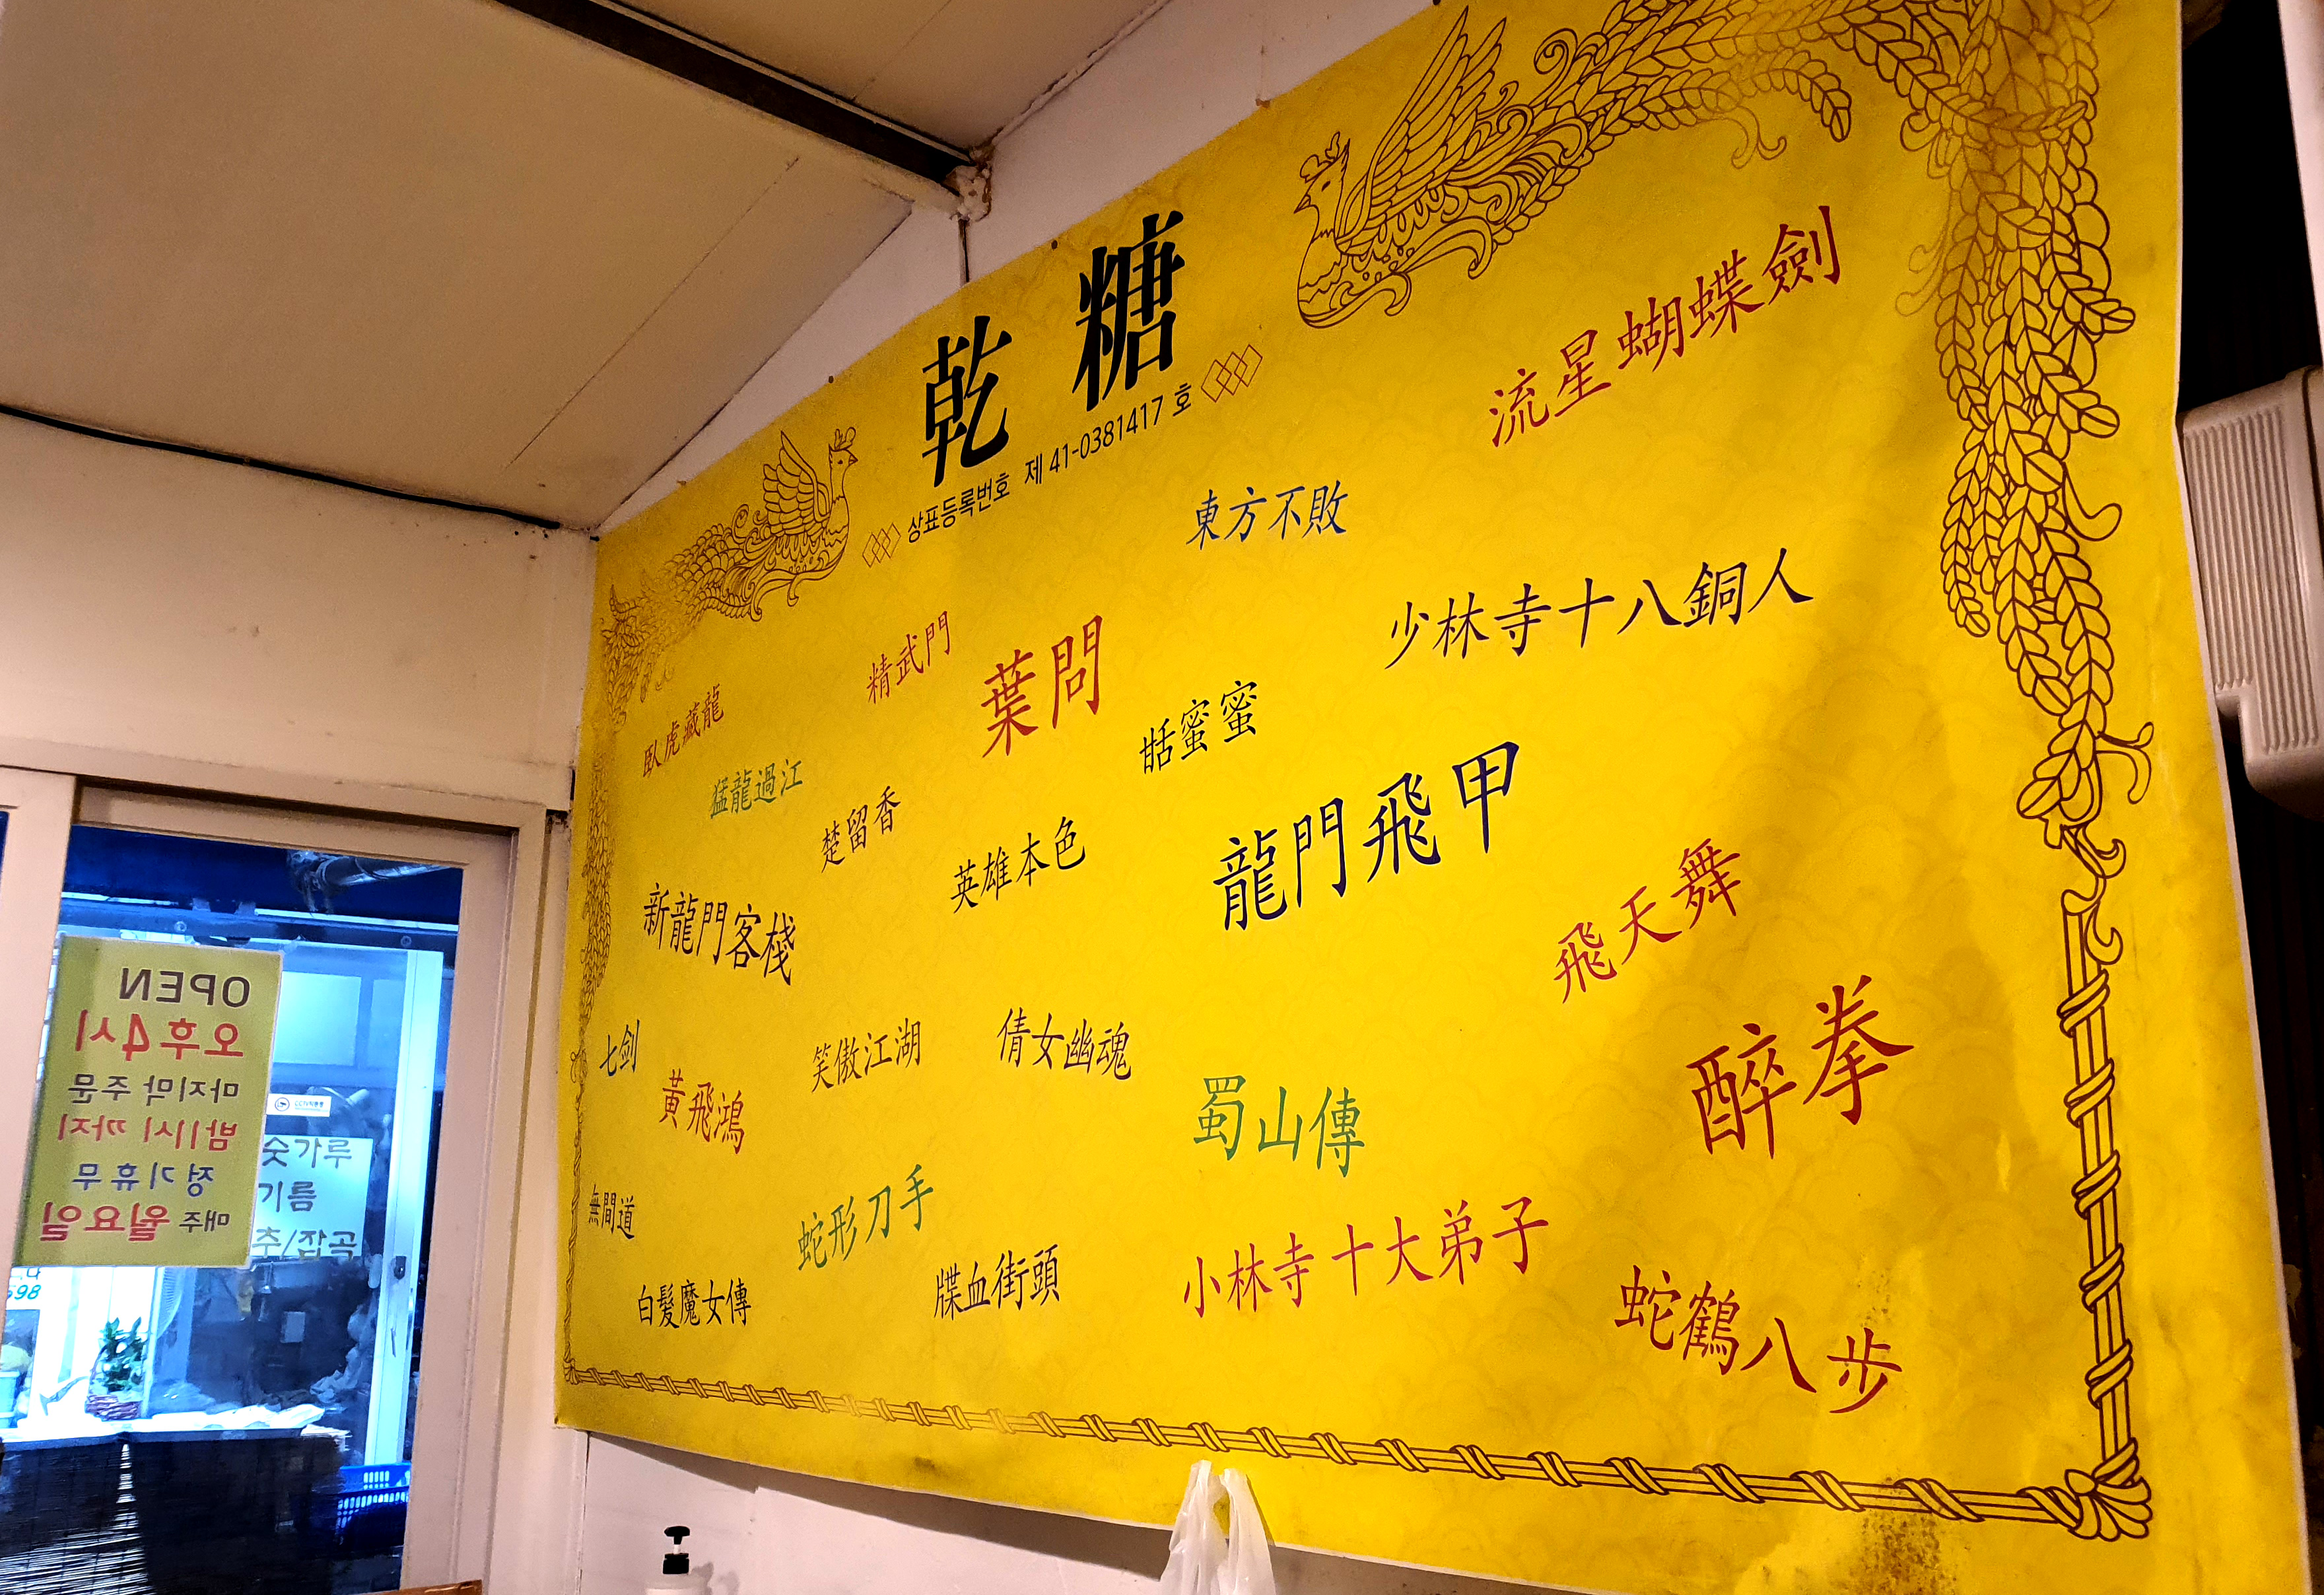 乾 糖
상표등록번호 제 41-0381417 호
流星蝴蝶劍
東方不敗
少林寺十八銅人
精武門
葉問
臥虎藏龍
甛蜜蜜
猛龍過江
楚留香
英雄本色
龍門飛甲
新龍門客棧
飛天舞
七剑
黃飛鴻
笑傲江湖
倩女幽魂
蜀山傳
醉拳
無間道
蛇形刀手
小林寺十大弟子
白髮魔女傳
牒血街頭
蛇鶴八步
OPEN
오후4시
마지막 주문
밤11시 까지
정기휴무
매주 월요일
숫가루
기름